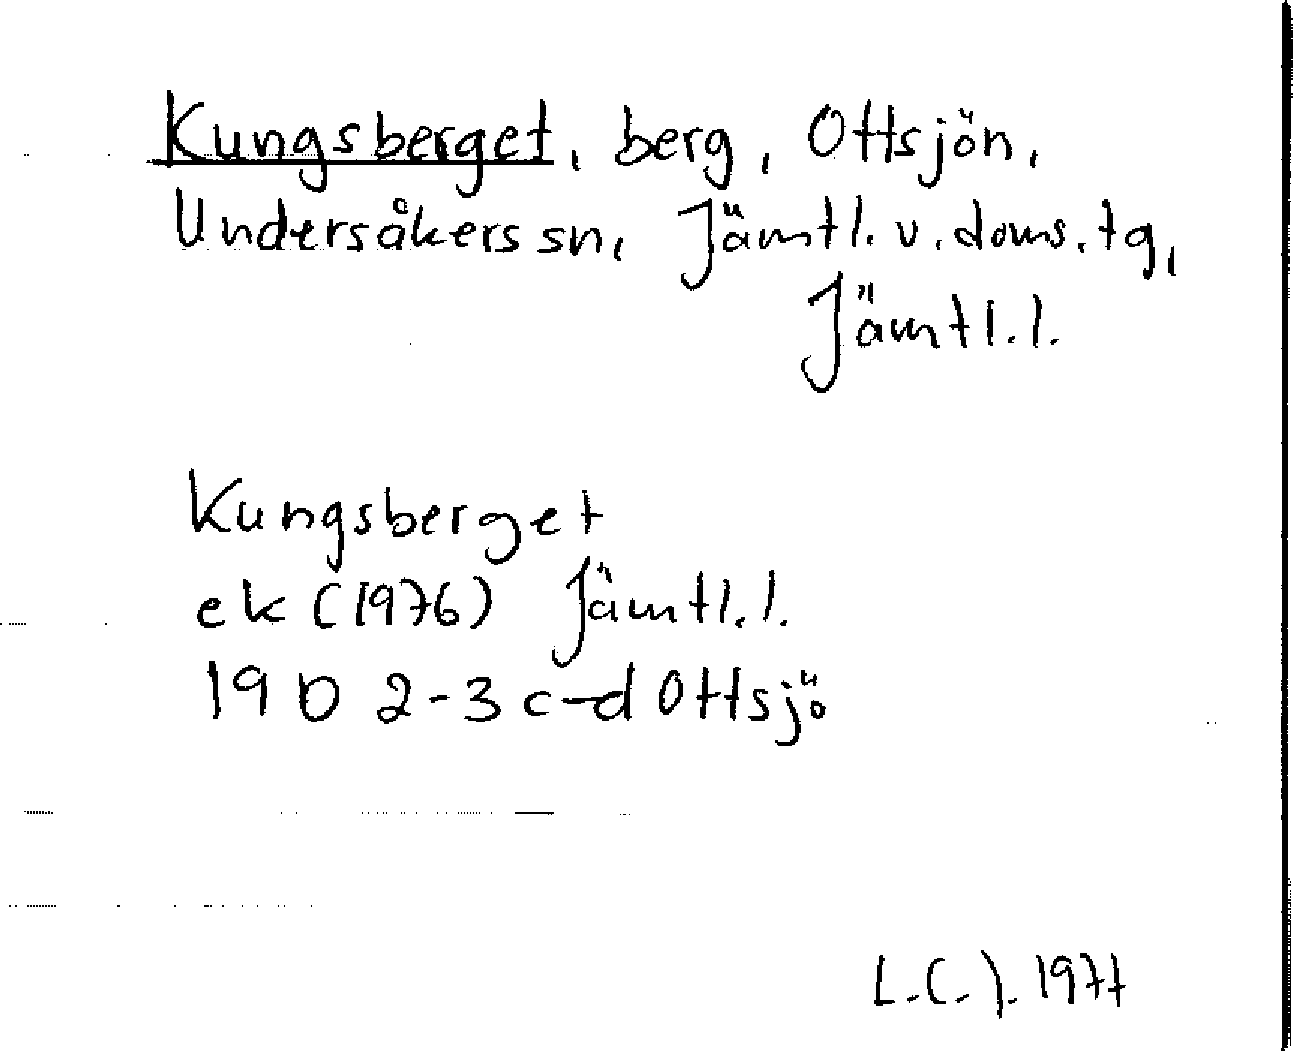 Kungsberget, berg, Ottsjön,
Undersåkers sn, Jämtl. v. doms. tg,
Jämtl. l.
Kungsberget
ek (1976) Jämtl. l.
19 D 2-3 c-d Ottsjö
L.C.J. 1977